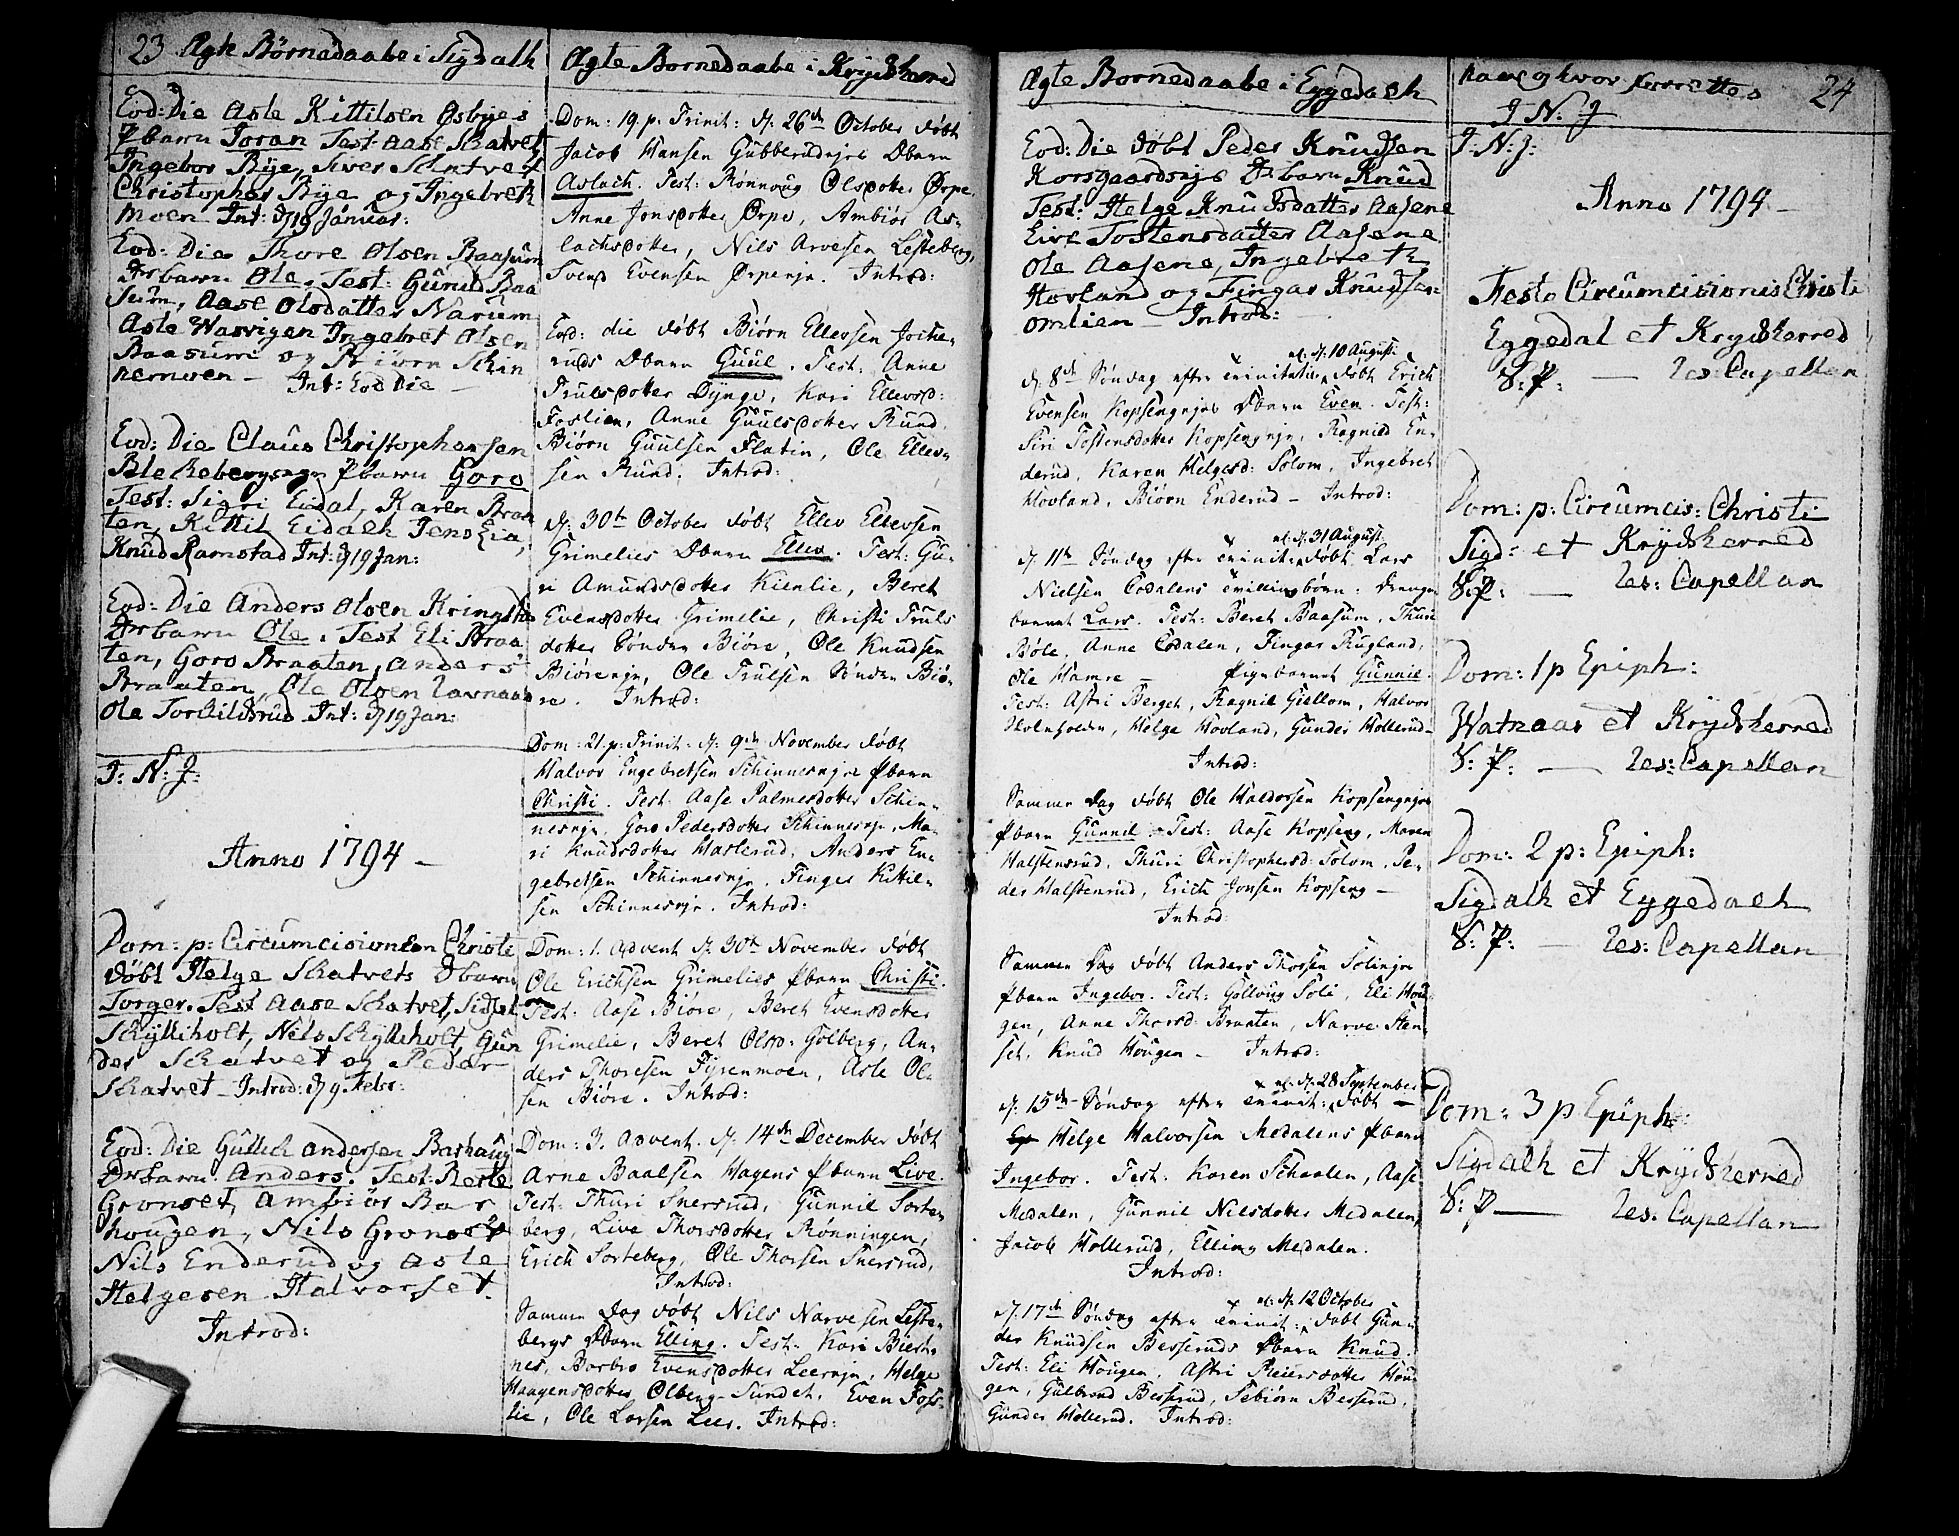 23 Ægte Børnedaabe i Sigdahl
Eod: Die Asle Kittilsen Øsbyes
Pbarn Joran Test: Aase Skatvet
Ingebor Bye, Siver Skatvet
Christopher Bye og Ingebreth
Moen Int: d 19 Januar:
Eod: Die Thore Olsen Baasum
Drbarn Ole. Test: Gunild Baa
sum, Aase Olsdatter Narum
Asle Warvigen Ingebret Olsen
Baasum og Biørn Skin
nernoen – Int: Eod Die –
Eod: Die Claus Christophersen
Blekebergseyen Pbarn Goro
Test: Sigri Eidal, Karen Braa
ten, Kittil Eidalh Jens Eia,
Knud Ramstad Int: d 19 Jan:
Eod: Die Anders Olsen
Drbarn Ole. Test Eli Braa
ten, Goro Braaten, Anders
Braaten, Ole Olsen
Ole Torkildsrud Int: d 19 Jan:
I: N: J:
Anno 1794 –
Dom: p: Circumcisionem Christi
døbt Helge Skatvets Dbarn
Torger. Test Aase Skatvet,
Skylliholt, Nils Skylliholt, Gun
der Skatvet og Peder
Skatvet – Introd: d 9 Febr:
Eod: Die Gullich Andersen Barhaug
Drbarn Anders. Test: Berte
Gronset, Ambiør Bar
hougen, Nils Gronset
Nils Enderud og Asle
Helgesen Halvorset.
Introd:
Ægte Børnedaabe i Krydsherred
Dom: 19. p. Trinit: d. 26de October døbt
Jacob Hansen Gubberudejes Dbarn
Aslach. Test: Rønnoug Olsdotter Ørpe
Anne Jonsdotter Ørpe, Ambiør As-
lachsdotter, Nils Arvesen Lesteberg,
Svend Evensen Ørpenje. Introd:
Eod: die døbt Biørn Ellevsen
ruds Dbarn Guul. Test: Anne
Trulsdotter Dynge, Kari Ellevsd:
Foslien, Anne Guulsdotter Rund,
Biørn Guulsen Flatin, Ole Ellev-
sen Rund. Introd:
d. 30te October døbt Ellev Ellevsen
Grimelies Dbarn Ellev. Test: Gu-
ri Amundsdotter Kienlie, Beret
Evensdotter Grimelie, Christi Truls
dotter Sønder Biøre, Ole Knudsen
Biørenje, Ole Trulsen Sønder Biø-
re. Introd:
Dom: 21. p: Trinit: d. 9de November døbt
Halvor Engebretsen Skinnesejes Pbarn
Christi. Test: Aase Palmesdotter Skin-
nesnje, Goro Pedersdotter Skinnesnje, Ma-
ri Knudsdotter Haslerud, Anders En-
gebretsen Skinnesnje, Finger Kittil-
sen Skinnesnje. Introd:
Dom: 1. Advent d. 30te November døbt
Ole Erichsen Grimelies Pbarn Christi.
Test: Aase Biøre, Beret Evensdotter
Grimelie, Beret Olsd: Golberg, An-
ders Thoresen Fyrenmoen, Asle Ol-
sen Biøre. Introd:
Dom: 3. Advent. d. 14de December døbt
Arne Baalsen Hagens Pbarn Live.
Test: Thuri Snersrud, Gunnil Sorte-
berg, Live Thorsdotter Rønningen,
Erich Sorteberg, Ole Thorsen Snersrud,
Introd:
Sammen Dag døbt Nils Narvesen Leste-
bergs Dbarn Elling. Test: Kari Bierk-
nes, Barbro Evensdotter Leernje, Helge
Haagensdotter Olberg-Sundet, Even Foss-
lie, Ole Larsen Leer. Introd:
Ægte Børnedaabe i Eggedahl
Eod: Die døbt Peder Knudsen
Korsgaardseje Drbarn Knud
Test: Helge Knudsdatter Aasene
Live Tostensdatter Aasene
Ole Aasene, Ingebreth
Hovland og Fingar Knudsen
omlien – Introd:
nl. d. 10 Augusti
d. 8de Søndag efter Trinitatis døbt Erich
Evensen Kopsengejes Dbarn Even. Test:
Siri Tostensdotter Kopsengnje, Ragnild En-
derud, Karen Helgesd: Solom, Ingebret
Hovland, Biørn Enderud – Introd:
nl. d. 31 August
d. 11te Søndag efter Trinit: døbt Lars
Nielsen Eedalens Tvillingbørn: Drenge
barnet Lars. Test: Beret Baasum, Thuri
Bøle, Anne Eedalen, Fingar Rugland,
Ole Hamre – Pigebarnet Gunnil.
Test: Astri Berget, Ragnil Giellom, Halvor
Holenholen, Helge Hovland, Gunder Hollerud –
Introd:
Sammen Dag døbt Ole Haldorsen Kopsengejes
Pbarn Gunnil – Test: Aase Kopseng, Maren
Halstensrud, Thuri Christophersd: Solom, Pe-
der Halstenrud, Erich Jonsen Kopseng –
Introd:
Sammen Dag døbt Anders Thorsen Solieje
Pbarn Ingebor. Test: Gollaug Soli, Eli Hou-
gen, Anne Thorsd: Braaten, Narve Sten-
set, Knud Hougen – Introd:
nl. d. 28 September
d. 15de Søndag efter Trinit: døbt –
Helge Halvorsen Medalens Pbarn
Ingebor. Test: Karen Skaalen, Aase
Medalen, Gunnil Nilsdotter Medalen,
Jacob Hollerud, Elling Medalen.
Introd:
nl. d. 12 October
d. 17de Søndag efter Trinit: døbt Gun-
der Knudsen Besseruds Dbarn Knud.
Test: Eli Hougen, Astri Reiersdotter Hou-
gen, Gulbrand Besserud, Sebiørn Besserud,
Gunder Hollerud. Introd:
Naar og hvor forrettes 24
I: N: J
I: N: J:
Anno 1794 –
Festo Circumcisionis Christi
Eggedal et Krydsherred
S: P: — Res: Capellan
Dom: p: Circumcis: Christi
Sigd: et Krydsherred
S: P: — Res: Capellan
Dom: 1 p Epiph:
Watnaas et Krydsherred
S: P: — Res: Capellan
Dom: 2 p: Epiph:
Sigdalh et Eggedaeh
S: P: — Res: Capellan
Dom: 3 p Epiph:
Sigdalh et Krydsherred
S: P — Res: Capellan